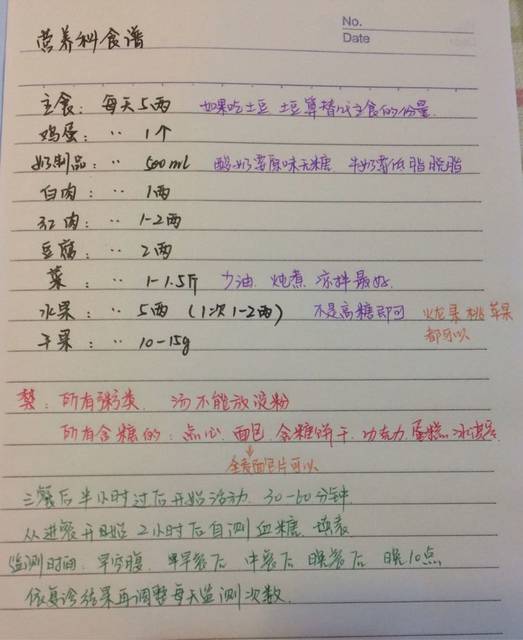 No.
Date
营养科食谱
主食：每天5两 如果吃土豆 土豆算替代主食的份量
鸡蛋：·· 1个
奶制品：·· 500ml 酸奶要原味无糖 牛奶要低脂脱脂
白肉：·· 1两
红肉：·· 1-2两
豆腐：·· 2两
菜：·· 1-1.5斤 少油 炖煮 凉拌最好
水果：·· 5两（1次1-2两） 不是高糖即可 火龙果 桃 苹果
都可以
干果：·· 10-15g
禁：所有粥类 汤不能放淀粉
所有含糖的：点心 面包 含糖饼干 巧克力 蛋糕 冰淇淋
全麦面包片可以
三餐后半小时过后开始活动 30-60分钟
从进餐开始 2小时后自测血糖 填表
监测时间：早空腹 早餐后 中餐后 晚餐后 晚10点
依复诊结果再调整每天监测次数